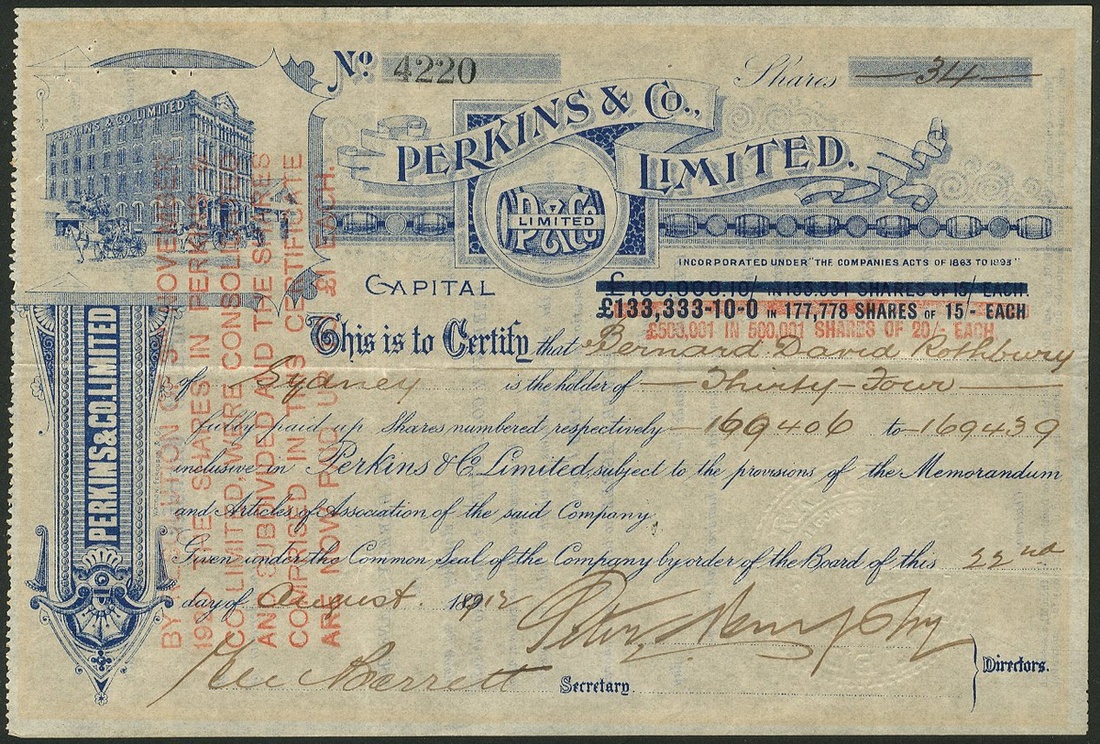 No. 4220
Shares 34
PERKINS & CO LIMITED
PERKINS & CO., LIMITED.
P & Co
LIMITED
INCORPORATED UNDER "THE COMPANIES ACTS OF 1863 TO 1893"
CAPITAL £100,000.10/ IN 133,334 SHARES OF 15/ EACH.
£133,333-10-0 IN 177,778 SHARES OF 15/- EACH
£500,001 IN 500,001 SHARES OF 20/- EACH
This is to Certify that Bernard David Rothbury
of Sydney is the holder of Thirty-Four
fully paid up Shares numbered respectively 169406 to 169439
inclusive in Perkins & Co. Limited, subject to the provisions of the Memorandum
and Articles of Association of the said Company.
Given under the Common Seal of the Company by order of the Board of this 22nd
day of August 1912
Directors.
Barrett
Secretary
PERKINS & CO. LIMITED
BY NOVEMBER
THE SHARES IN PERKINS
CO LIMITED, WERE CONSOLIDATED
AND SUBDIVIDED AND THE SHARES
COMPRISED IN THIS CERTIFICATE
ARE NOW PAID UP TO £1 EACH.